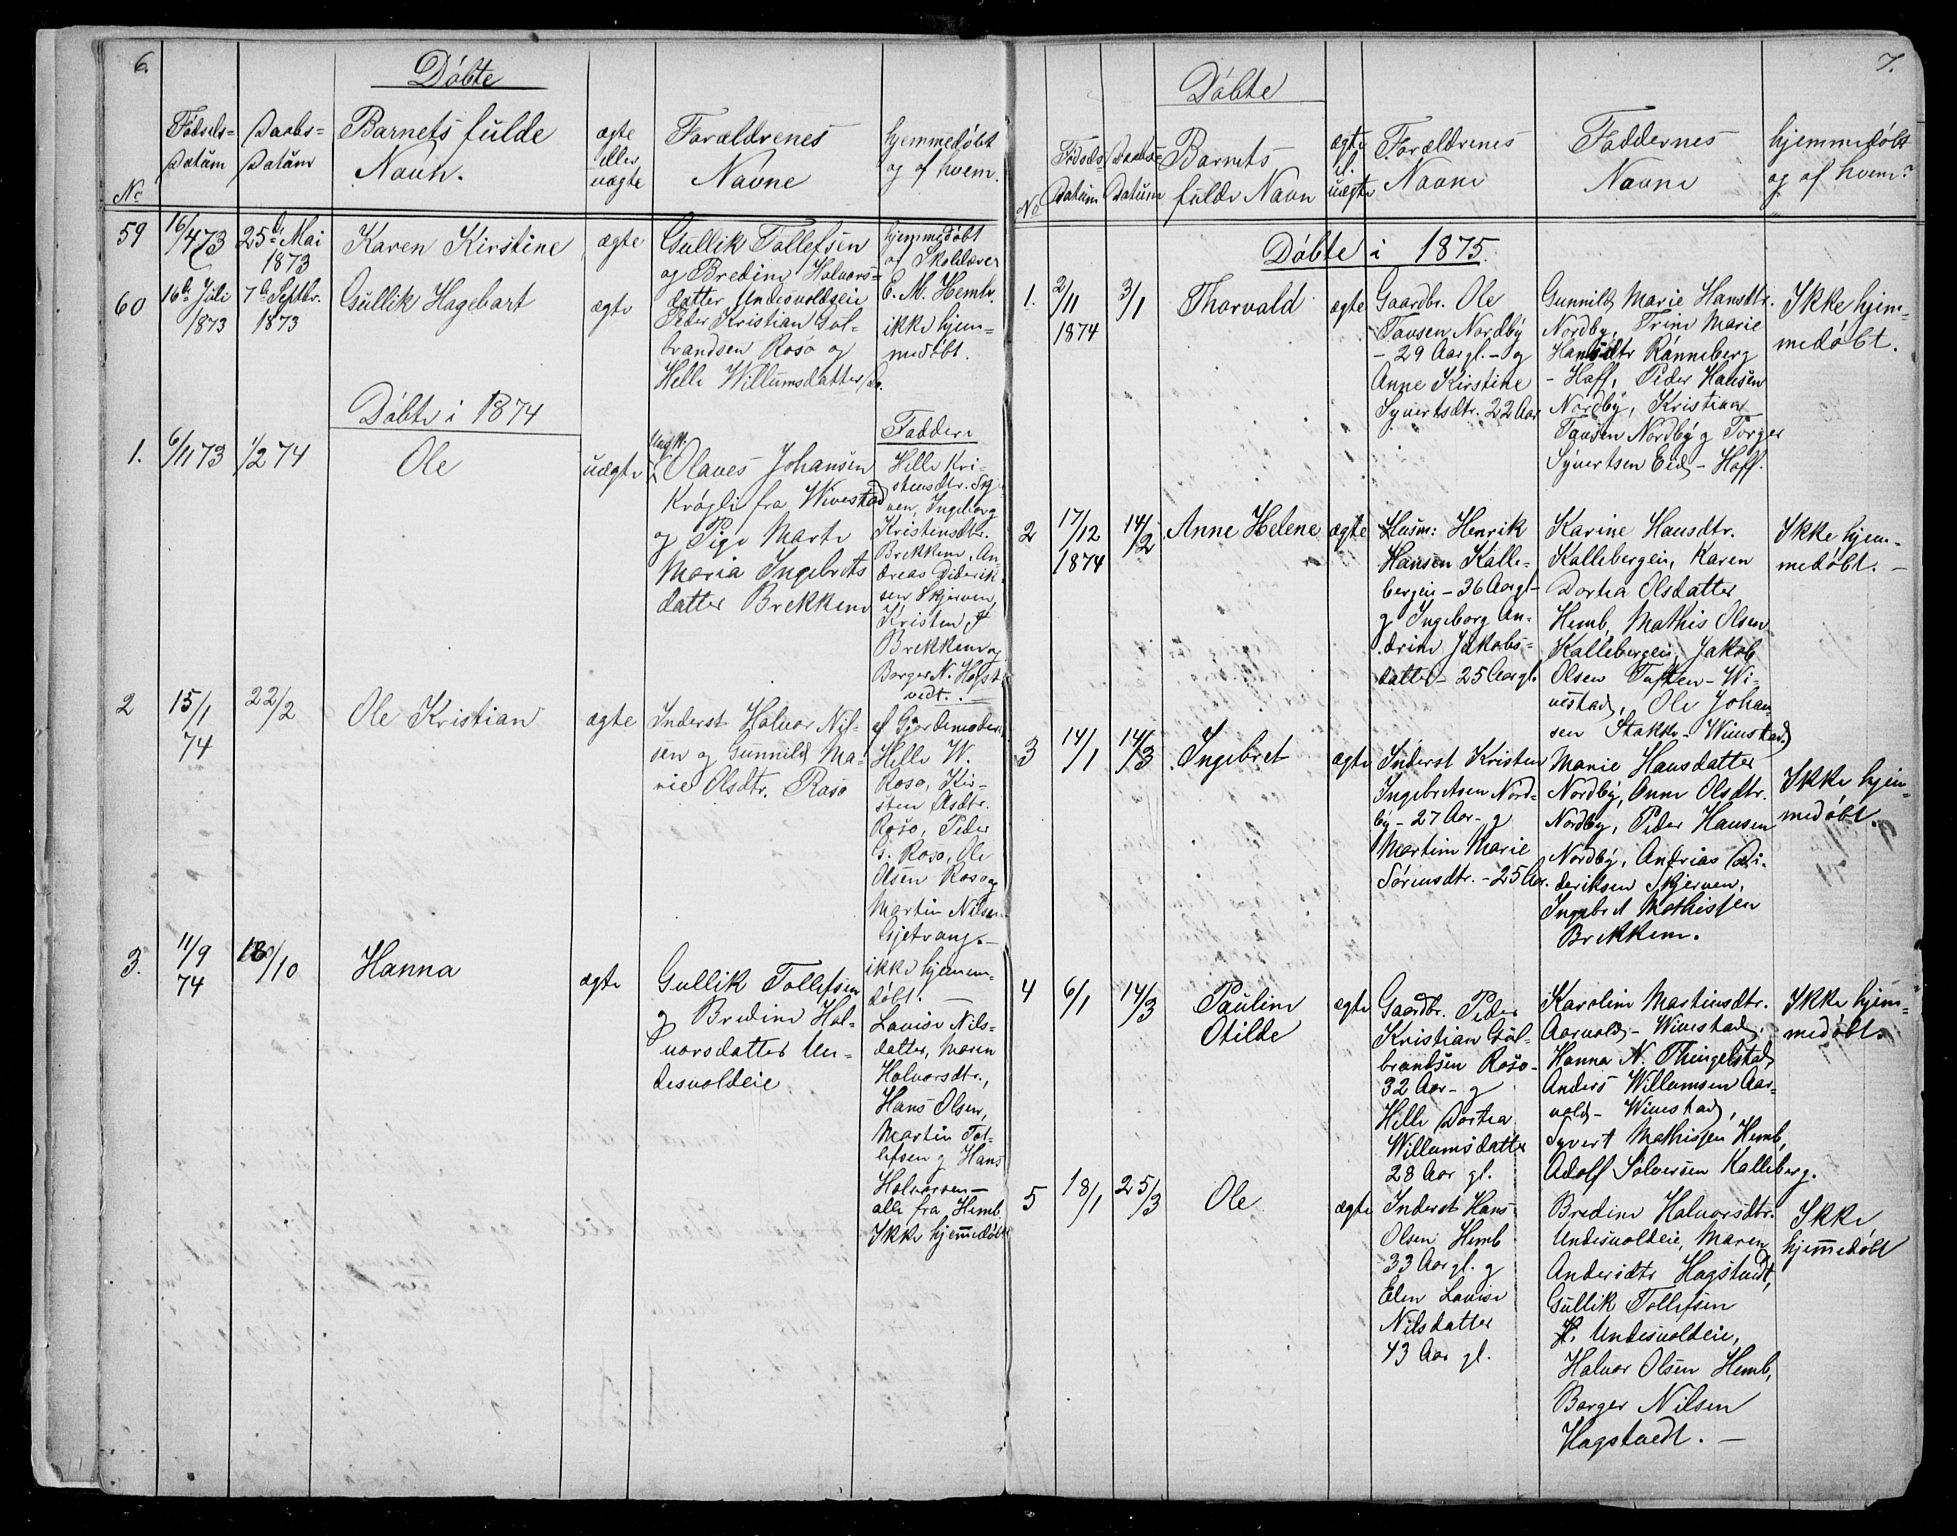 6.
Döbte
No
Födsels-
Datum
Daabs-
Datum
Barnets fulde
Navn.
ægte
eller
uægte
Forældrenes
Navne
hjemmedøbt
og af hvem.
59
16/4 73
25de Mai
1873
Karen Kirstine
ægte
Gullik Tollefsen
og Bredine Halvors-
datter Undesvoldeie
hjemmedøbt
af Skolelærer
C. M. Hemb.
60
16de Juli
1873
7de Septbr.
1873
Gullik Hagebart
ægte
Peder Kristian Gul-
brandsen Roso og
Helle Willumsdatter
ikke hjem-
medøbt.
Döbte i 1874
1.
6/11 73
1/2 74
Ole
uægte
Olaves Johansen
Krøgli fra Wivestad
og Pige Marte
Maria Ingebrets
datter Brekkene
Faddere
Helle Kri-
stensdtr. Skjer-
ven, Ingeborg
Kristensdtr.
Brekkene, An-
dreas Diderik-
sen Skjerven,
Kristen
Brekkene og
Borger N. Hagst-
vedt.
2
15/1
74
22/2
Ole Kristian
ægte
Inderst Halvor Nil-
sen og Gunnild Ma-
rie Olsdtr. Roso
af Gjordemoder.
Helle W.
Roso, Kir-
sten Asdtr.
Roso, Peder
G. Roso, Ole
Olsen Roso og
Martin Nilsen
Gjetvang.-
3.
11/9
74
18/10
Hanna
ægte
Gullik Tollefsen
og Bredine Hal-
vorsdatter Un-
desvoldeie
ikke hjemm-
døbt.
Lovise Nils-
datter, Maren
Halvorsdtr.,
Hans Olsen,
Martin Tol-
lefsen og Hans
Halvorsen-
alle fra Hemb
Ikke hjemmedøbt
7.
Döbte
No
Födsels-
Datum
Daabs-
Datum
Barnets
fulde Navn
ægte
el.
uægte
Forældrenes
Navne
Faddernes
Navne
hjemmedøbt
og af hvem?
Döbte i 1875.
1.
2/11
1874
3/1
Thorvald
ægte
Gaardbr. Ole
Tovsen Nordby
- 29 Aar gl. - og
Anne Kirstine
Syvertsdtr. 22 Aar
Gunnild Marie Hansdtr.
Nordby, Trine Marie
Hansdtr Rønneberg
- Hoff, Peder Hansen
Nordby, Kristian
Tovsen Nordby og Torger
Syvertsen Eid - Hoff.
Ikke hjem-
medøbt.
2
17/12
1874
14/2
Anne Helene
ægte
Husm: Henrik
Hansen Kalle-
bergeie - 36 Aar gl-
og Ingeborg An-
drine Jakobs-
datter - 25 Aar gl.
Karine Hansdtr.
Kallebergeie, Karen
Dortea Olsdatter
Hemb, Mathis Olsen
Kallebergeie, Jakob
Olsen Toften - Wi-
vestad, Ole Johan-
sen Stokke - Wivestad
Ikke hjem-
medøbt. -
3
14/1
14/3
Ingebret
ægte
Inderst Kristen
Ingebretsen Nord-
by - 27 Aar - og
Martine Marie
Sörensdtr. - 25 Aar.
Marie Hansdatter
Nordby, Anne Olsdtr.
Nordby, Peder Hansen
Nordby, Andreas Di-
deriksen Skjerven,
Ingebret Mathissen
Brekkene.
Ikke hjem-
medøbt.
4
6/1
14/3
Pauline
Otilde
ægte
Gaardbr. Peder
Kristian Gul-
brandsen Roso-
32 Aar - og
Helle Dortea
Willumsdatter
28 Aar gl.
Karoline Martinsdtr.
Aarvold - Wivestad,
Hanna N. Thingelstad,
Anders Willumsen Aar-
vold - Wivestad,
Syvert Mathissen Hemb,
Adolf Solversen Kalleberg.
Ikke hjem-
medøbt.
5
18/1
25/3
Ole
ægte
Inderst Hans
Olsen Hemb
33 Aar gl. og
Elen Lovise
Nilsdatter
43 Aar gl.
Bredine Halvorsdtr.
Undesvoldeie, Maren
Andersdtr Hagstvedt,
Gullik Tollefsen
Undesvoldeie,
Halvor Olsen Hemb,
Borger Nilsen
Hagstvedt. -
Ikke
hjemmedøbt